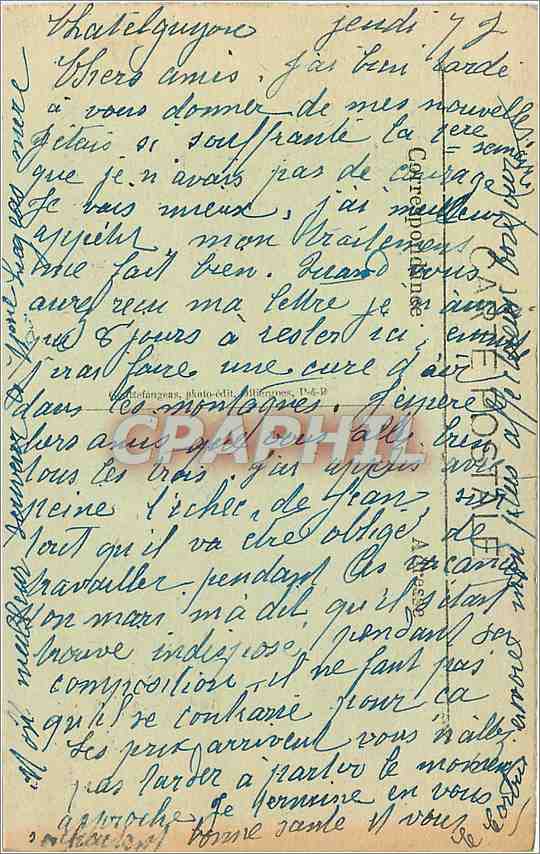 Chatelguyon jeudi 7 J
Chers amis. J'ai bien tardé
à vous donner de mes nouvelles
J'étais si souffrante la 1ère semaine
que je n'avais pas de courage
Je vais mieux, j'ai meilleur
appétit mon traitement
me fait bien. Quand vous
aurez reçu ma lettre je n'aurai
que 8 jours à rester ici, ensuite
j'irai faire une cure d'air
dans les montagnes. J'espère
chers amis que vous allez bien
tous les trois. J'ai appris avec
peine l'échec de Jean, surtout
tout qu'il va être obligé de
travailler pendant les vacances
ton mari m'a dit qu'il s'était
trouvé indisposé pendant ses
composition il ne faut pas
qu'il se contrarie pour ça
Les prix arrivent vous n'allez
pas tarder à partir le moment
approche Je termine en vous
souhaitant bonne santé et vous
Mon meilleur souvenir à Mme
CARTE POSTALE
Correspondance
Adresse
photo-édit.
CPARAMA